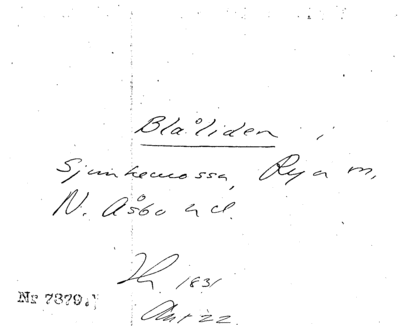 Blåliden i
Sjunkemossa, Rya m,
N. Åsbo hd.
1831
Nr 7879.